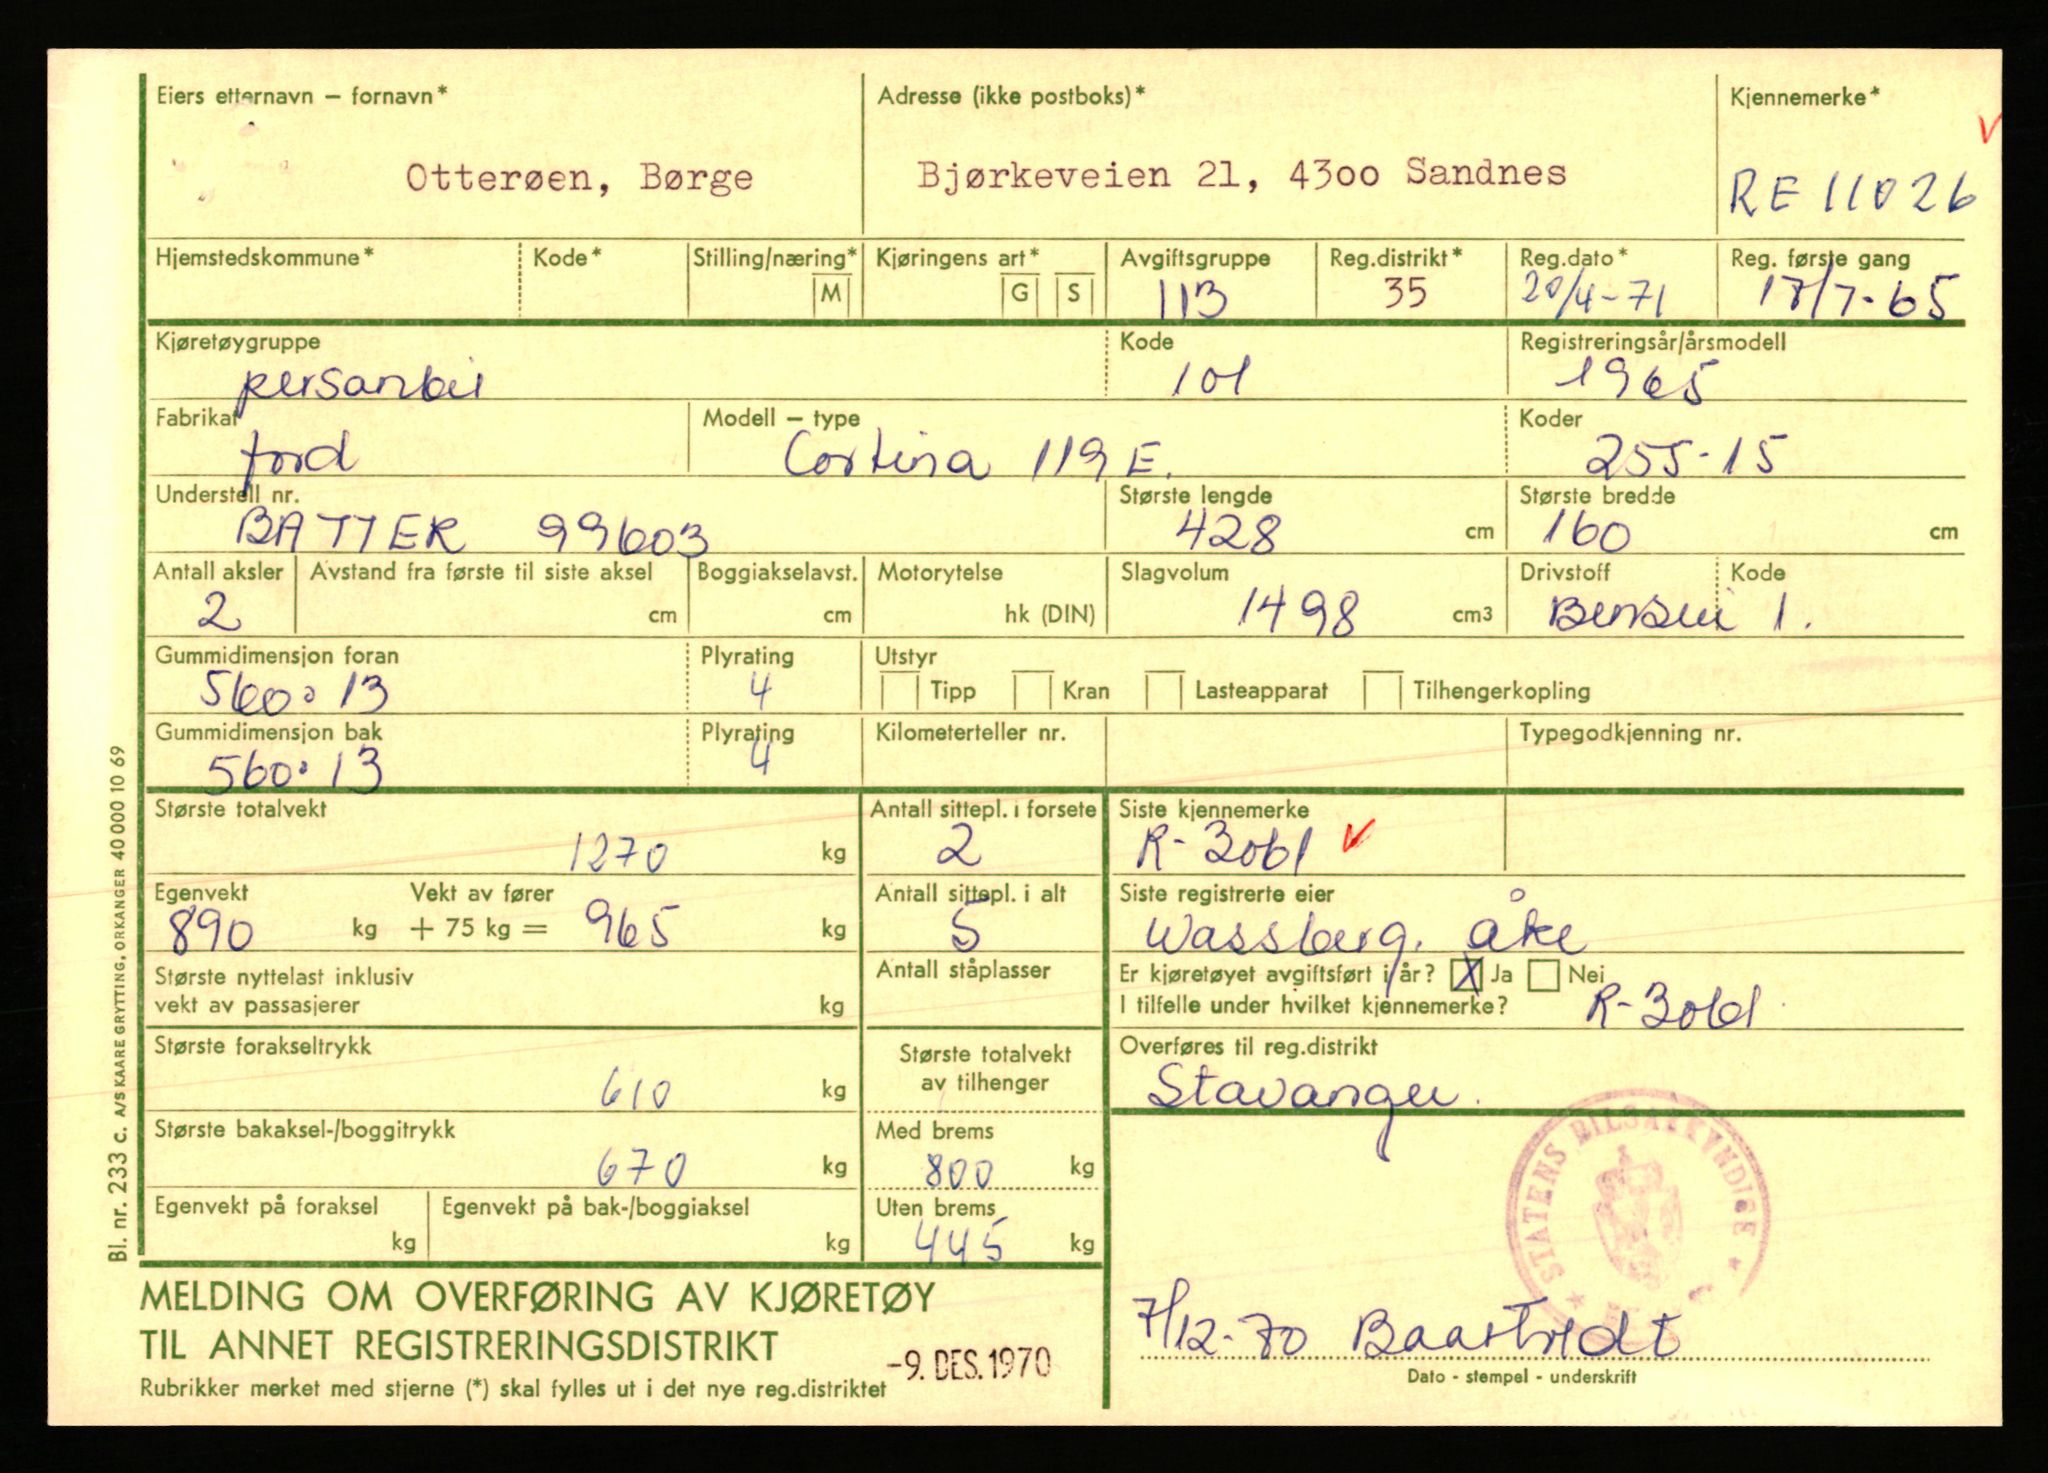 Eiers etternavn – fornavn*
Adresse (ikke postboks)*
Kjennemerke*
Otterøen, Børge
Bjørkeveien 21, 4300 Sandnes
RE 11026
Hjemstedskommune*
Kode*
Stilling/næring*
M
Kjøringens art*
G S
Avgiftsgruppe
113
Reg.distrikt*
35
Reg.dato*
20/4-71
Reg. første gang
17/7-65
Kjøretøygruppe
personbil
Kode
101
Registreringsår/årsmodell
1965
Fabrikat
ford
Modell – type
Cortina 119 E.
Koder
255-15
Understell nr.
BA77ER 99603
Største lengde
428 cm
Største bredde
160 cm
Antall aksler
2
Avstand fra første til siste aksel
cm
Boggiakselavst.
cm
Motorytelse
hk (DIN)
Slagvolum
1498 cm3
Drivstoff
Bensin
Kode
1.
Gummidimensjon foran
560·13
Plyrating
4
Utstyr
Tipp Kran Lasteapparat Tilhengerkopling
Gummidimensjon bak
560·13
Plyrating
4
Kilometerteller nr.
Typegodkjenning nr.
Største totalvekt
1270 kg
Antall sittepl. i forsete
2
Siste kjennemerke
R-3061
Egenvekt
890 kg
Vekt av fører
+ 75 kg = 965 kg
Antall sittepl. i alt
5
Siste registrerte eier
Wassberg, Åke
Største nyttelast inklusiv
vekt av passasjerer kg
Antall ståplasser
Er kjøretøyet avgiftsført i år? X Ja Nei
I tilfelle under hvilket kjennemerke? R-3061
Største forakseltrykk
610 kg
Største totalvekt
av tilhenger
Overføres til reg.distrikt
Stavanger.
Største bakaksel-/boggitrykk
670 kg
Med brems
800 kg
Egenvekt på foraksel
kg
Egenvekt på bak-/boggiaksel
kg
Uten brems
445 kg
STATENS BILSAKKYNDIGE
MELDING OM OVERFØRING AV KJØRETØY
TIL ANNET REGISTRERINGSDISTRIKT
-9. DES. 1970
Rubrikker merket med stjerne (*) skal fylles ut i det nye reg.distriktet
7/12-70 Baastvedt
Dato - stempel - underskrift
Bl. nr. 233 c. A/S KAARE GRYTTING, ORKANGER 40 000 10 69